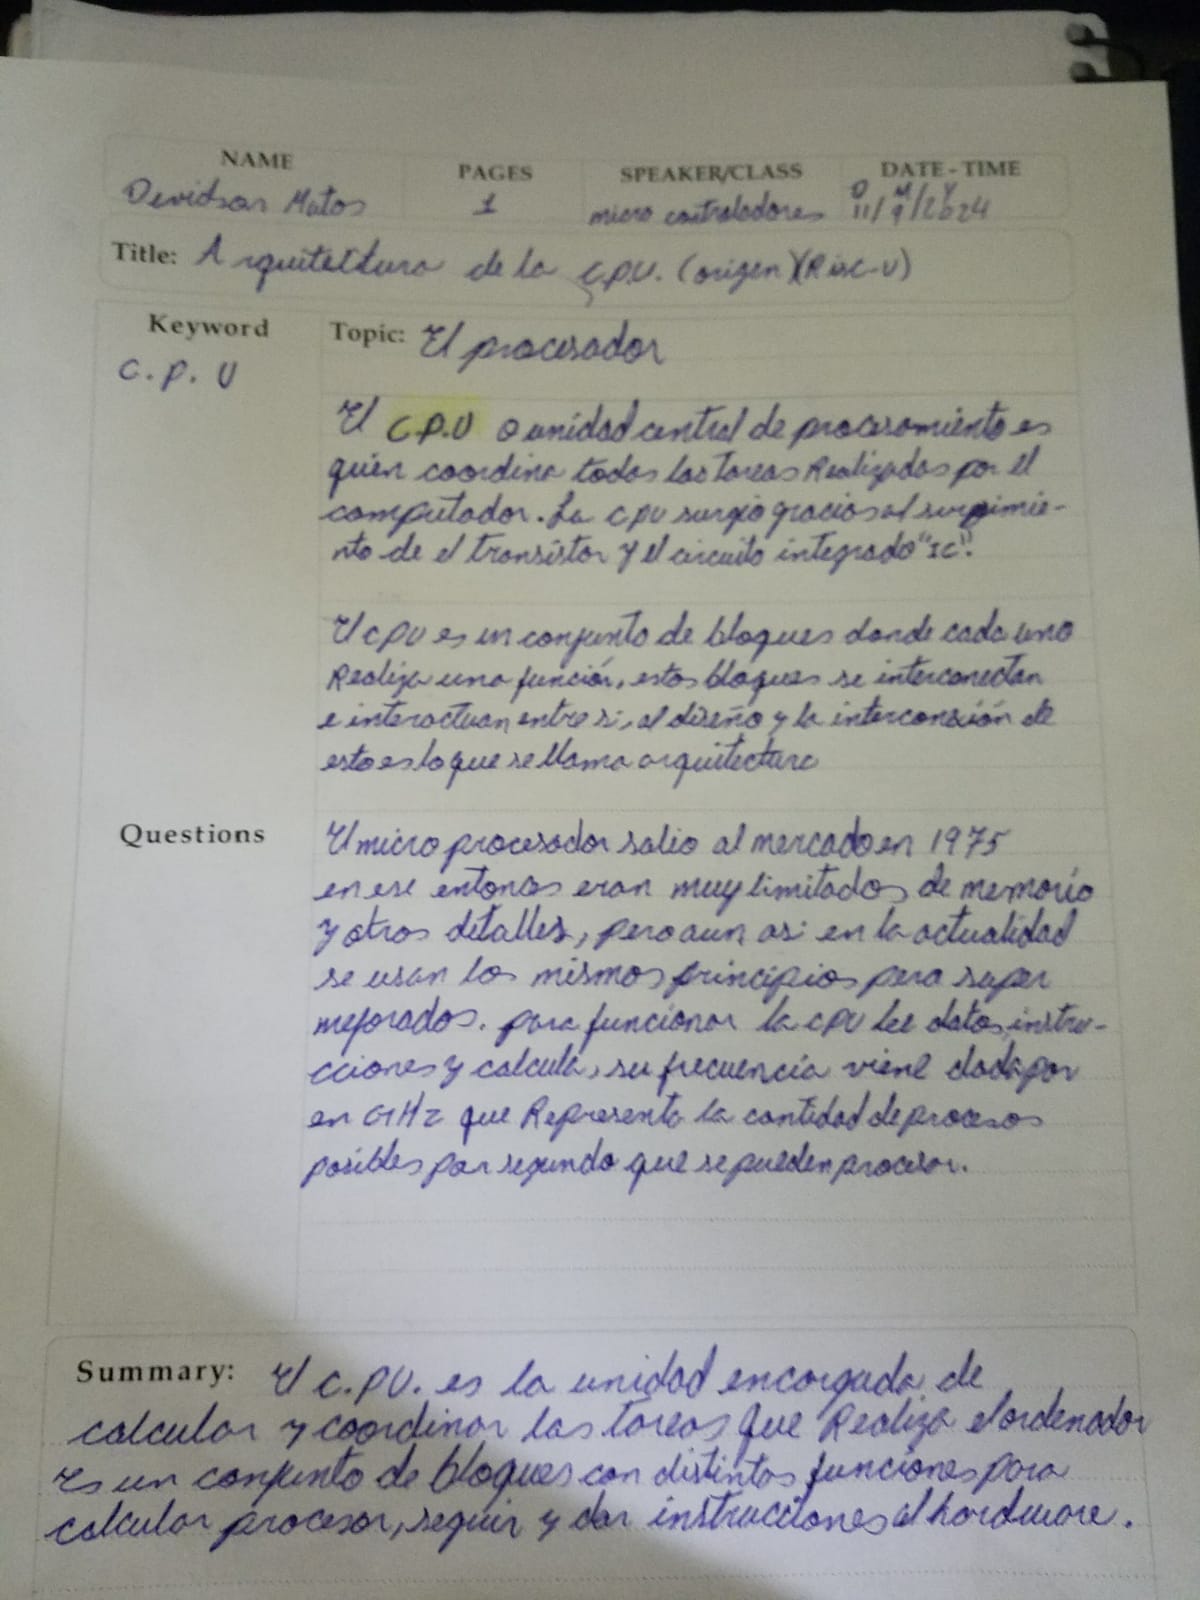 NAME PAGES SPEAKER/CLASS DATE-TIME
Devidson Matos 1 micro controladores D M Y 11/9/2024
Title: Arquitectura de la C.P.U. (origen)(Risc-V)
Keyword
C.P.U
Topic: El procesador
El C.P.U o unidad central de procesamiento es
quién coordina todas las tareas Realizadas por el
computador. La CPU surgio gracias al surgimie-
nto de el transistor y el circuito integrado "IC".
El CPU es un conjunto de bloques donde cada uno
Realiza una función, estos bloques se interconectan
e interactuan entre si, al diseño y la interconexión de
esto es lo que se llama arquitectura
Questions
El micro procesador salio al mercado en 1975
en ese entonces eran muy limitados de memoria
y otros detalles, pero aun asi en la actualidad
se usan los mismos principios pero super
mejorados. para funcionar la CPU lee datos, instru-
cciones y calcula, su frecuencia viene dada por
en GHz que Representa la cantidad de procesos
posibles por segundo que se pueden procesar.
Summary: El C.PU. es la unidad encargada de
calcular y coordinar las tareas que Realiza el ordenador
Es un conjunto de bloques con distintas funciones para
calcular procesar, seguir y dar instrucciones al hardware.